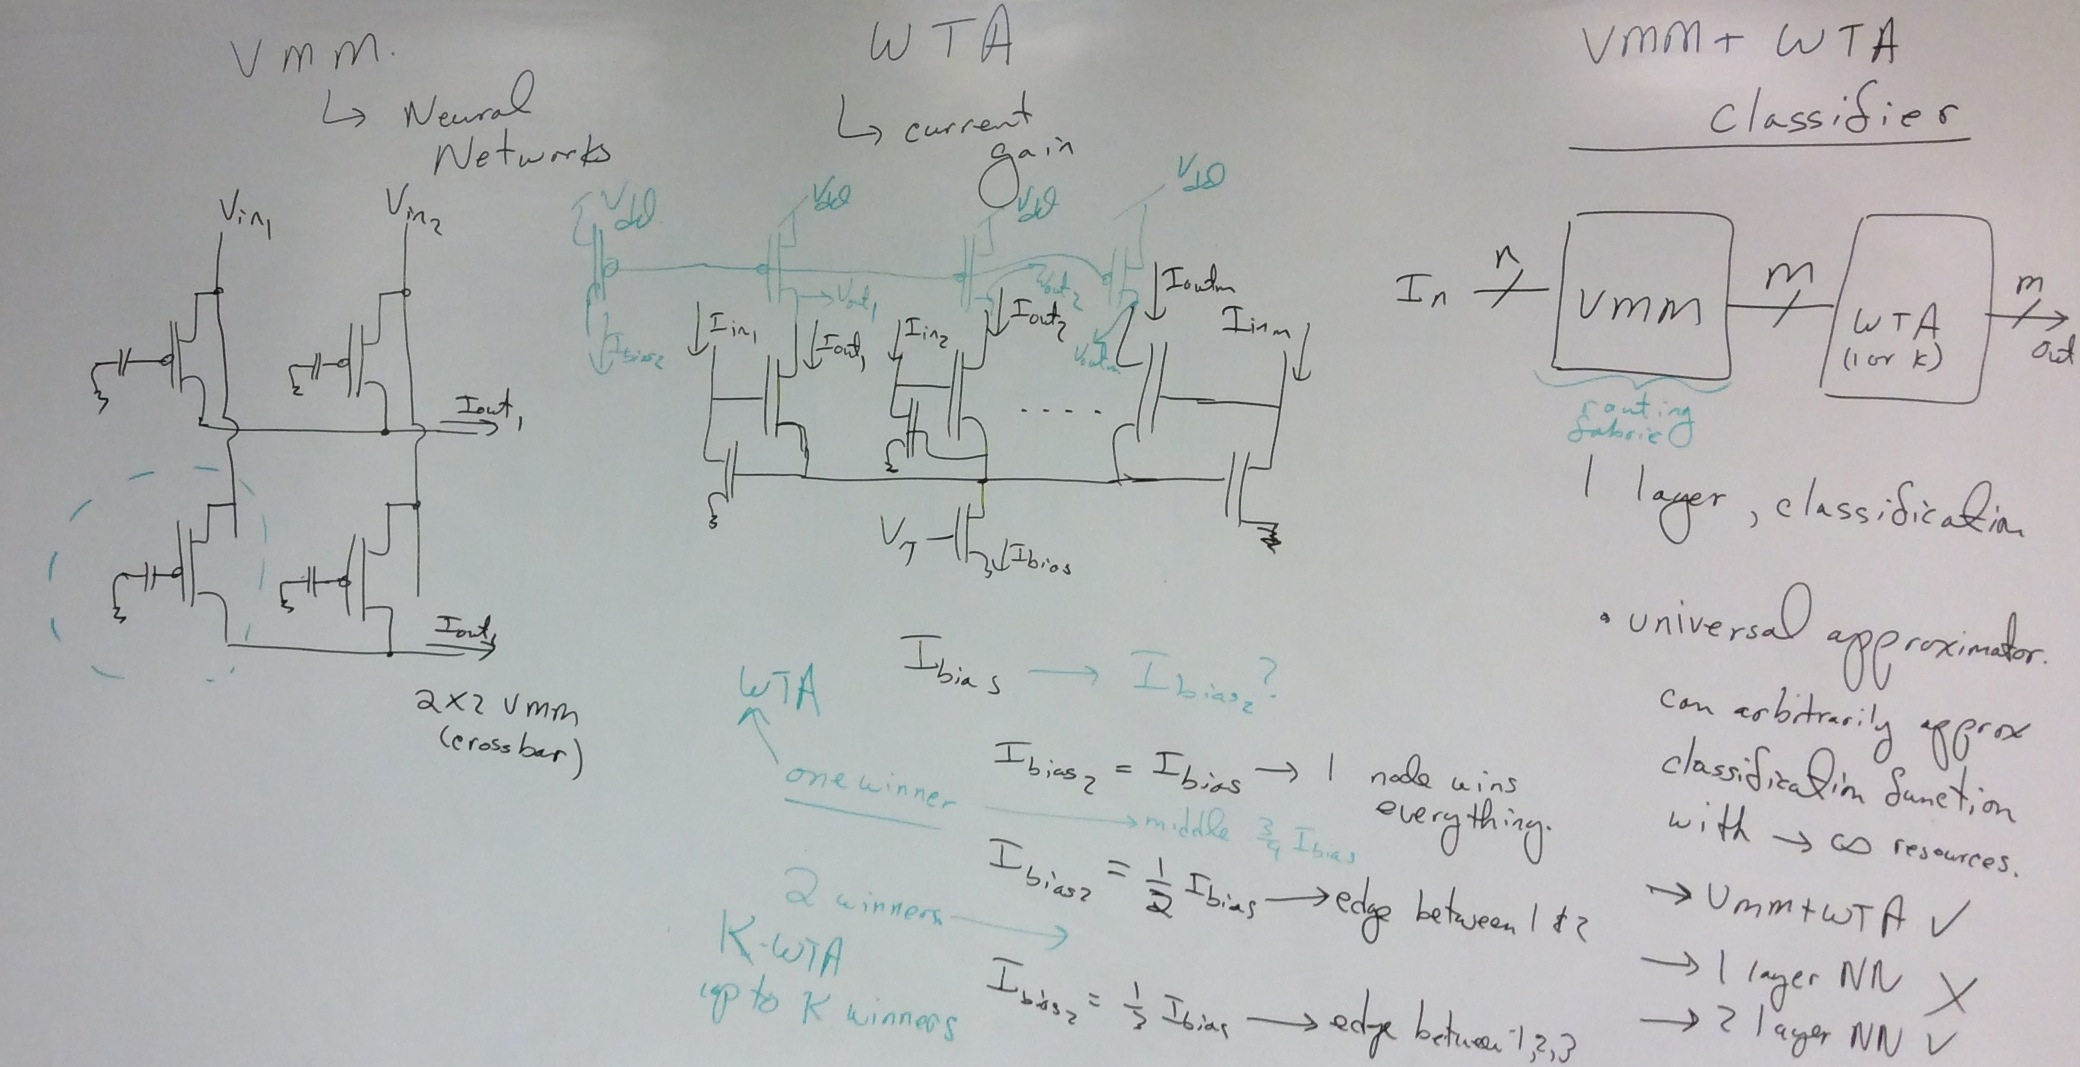 VMM.
↳ Neural
Networks
Vin1
Vin2
Iout1
Iout1
2x2 VMM
(crossbar)
WTA
↳ current
gain
Vdd
Vdd
Vdd
Vdd
Ibias2
Vout1
Vout2
Voutm
Iin1
Iout1
Iin2
Iout2
Ioutm
Iinm
....
Vτ
Ibias
Ibias → Ibias2?
WTA
one winner
Ibias2 = Ibias → 1 node wins
everything.
→ middle 3/4 Ibias
Ibias2 = 1/2 Ibias → edge between 1 & 2
2 winners →
K-WTA
up to K winners
Ibias2 = 1/3 Ibias → edge between 1,2,3
VMM + WTA
Classifier
In
n
VMM
m
WTA
(1 or K)
m
out
routing
fabric
1 layer, classification
• universal approximator.
can arbitrarily approx
classification function
with → ∞ resources.
→ VMM+WTA ✓
→ 1 layer NN X
→ 2 layer NN ✓